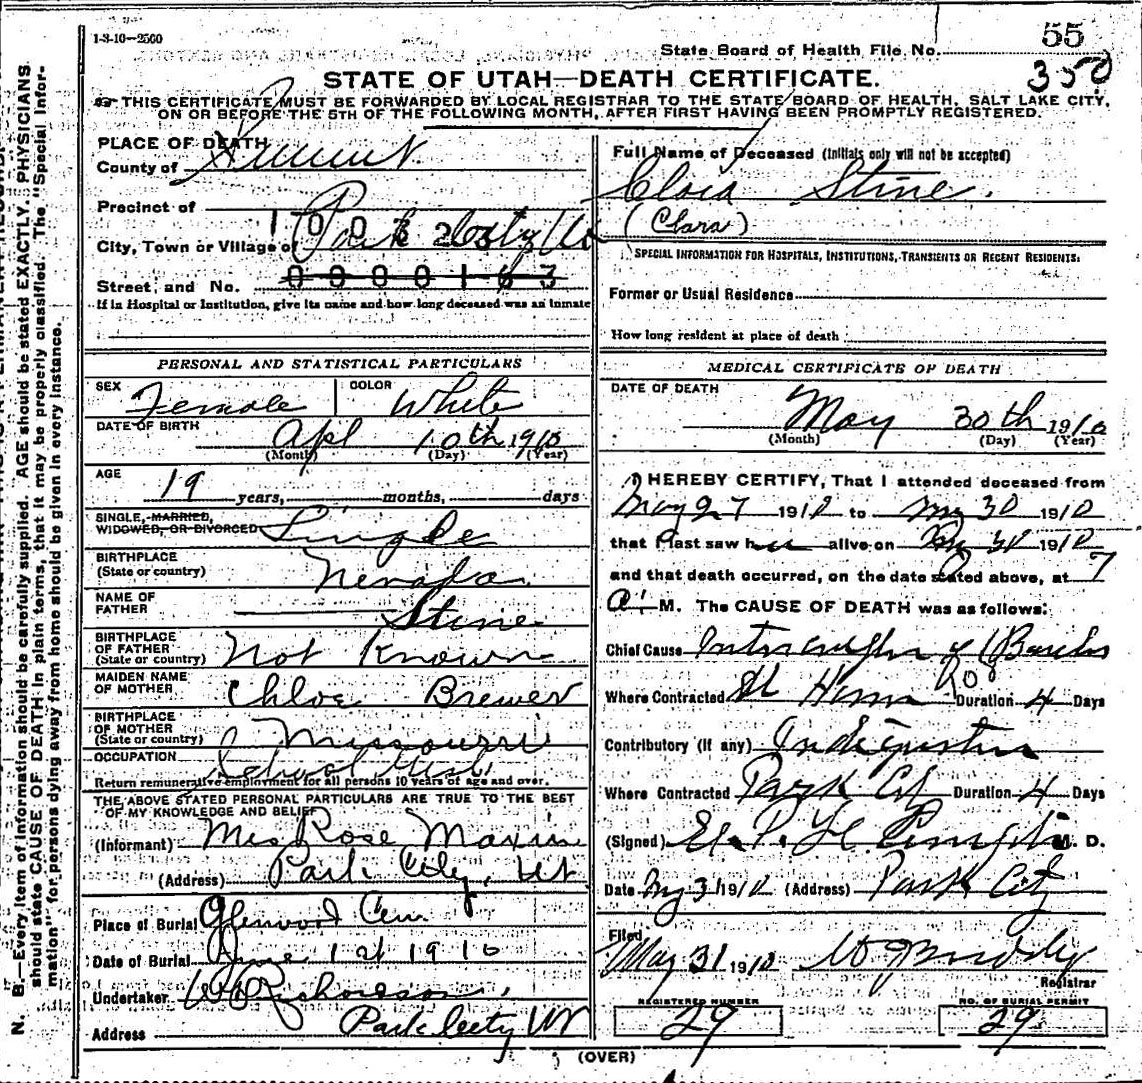 1-3-10-2500
State Board of Health File No. 55
350
STATE OF UTAH—DEATH CERTIFICATE.
THIS CERTIFICATE MUST BE FORWARDED BY LOCAL REGISTRAR TO THE STATE BOARD OF HEALTH, SALT LAKE CITY,
ON OR BEFORE THE 5TH OF THE FOLLOWING MONTH, AFTER FIRST HAVING BEEN PROMPTLY REGISTERED.
N. B.—Every item of information should be carefully supplied. AGE should be stated EXACTLY. PHYSICIANS
should state CAUSE OF DEATH in plain terms, that it may be properly classified. The "Special Infor-
mation" for persons dying away from home should be given in every instance.
PLACE OF DEATH
County of Summit
Precinct of
City, Town or Village of Park City
Street, and No. 0000163
If in Hospital or Institution, give its name and how long deceased was an inmate
Full Name of Deceased (Initials only will not be accepted)
Stine.
(Clara)
SPECIAL INFORMATION FOR HOSPITALS, INSTITUTIONS, TRANSIENTS OR RECENT RESIDENTS:
Former or Usual Residence
How long resident at place of death
PERSONAL AND STATISTICAL PARTICULARS
SEX Female COLOR White
DATE OF BIRTH Apl 10th 1910
(Month) (Day) (Year)
AGE 19 years, months, days
SINGLE, MARRIED,
WIDOWED, OR DIVORCED Single
BIRTHPLACE
(State or country) Nevada
NAME OF
FATHER Stine
BIRTHPLACE
OF FATHER
(State or country) Not Known
MAIDEN NAME
OF MOTHER Chloe Brewer
BIRTHPLACE
OF MOTHER
(State or country) Missourri
OCCUPATION School
Return remunerative employment for all persons 10 years of age and over.
THE ABOVE STATED PERSONAL PARTICULARS ARE TRUE TO THE BEST
OF MY KNOWLEDGE AND BELIEF
(Informant) Mrs Rose
(Address) Park City, Ut
Place of Burial Glenwood Cem.
Date of Burial June 1st 1910
Undertaker
Address Park City Ut
MEDICAL CERTIFICATE OF DEATH
DATE OF DEATH
May 30th 1910
(Month) (Day) (Year)
I HEREBY CERTIFY, That I attended deceased from
May 27 1910 to May 30 1910
that I last saw her alive on May 30 1910
and that death occurred, on the date stated above, at 7
A. M. The CAUSE OF DEATH was as follows:
Chief Cause of Bowels
Where Contracted At Home Duration 4 Days
Contributory (if any) Indigestion
Where Contracted Park City Duration 4 Days
(Signed) M. D.
Date May 31 1910 (Address) Park City
Filed
May 31 1910
Registrar
REGISTERED NUMBER
29
NO. OF BURIAL PERMIT
29
(OVER)